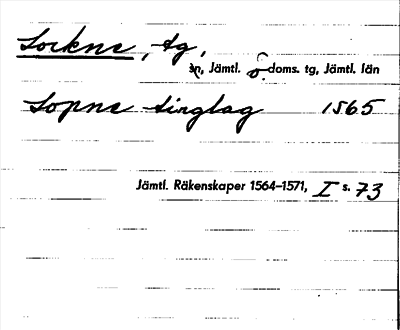 Lockne, tg,
sn, Jämtl. ö. doms. tg, Jämtl. län
Lopne tinglag 1565
Jämtl. Räkenskaper 1564–1571, I s. 73